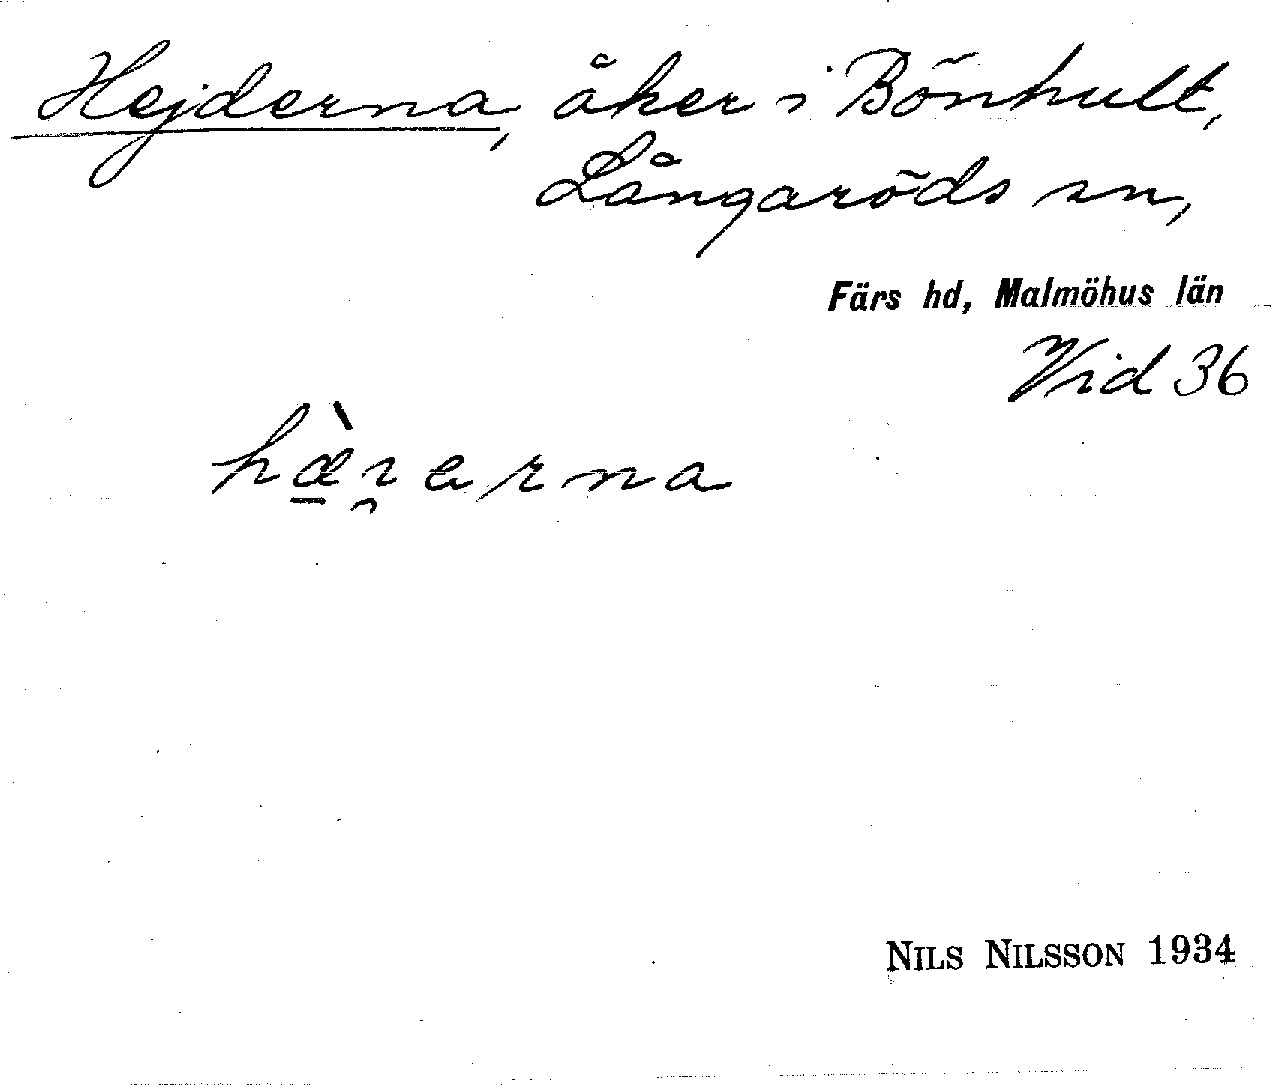 Hejderna, åker i Bönhult,
Långaröds sn,
Färs hd, Malmöhus län
Vid 36
hæ̱̀ɿ̯ɐrna
NILS NILSSON 1934